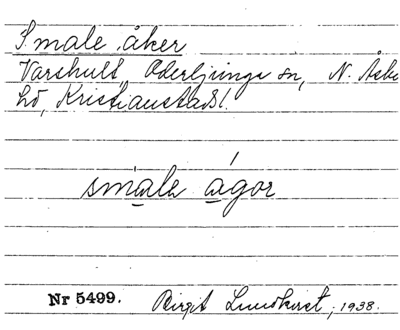 Smale åker
Varshult, Oderljunga sn, N. Åsbo
hd, Kristianstads l.
smale ágor
Nr 5499. Birgit Lundkvist, 1938.